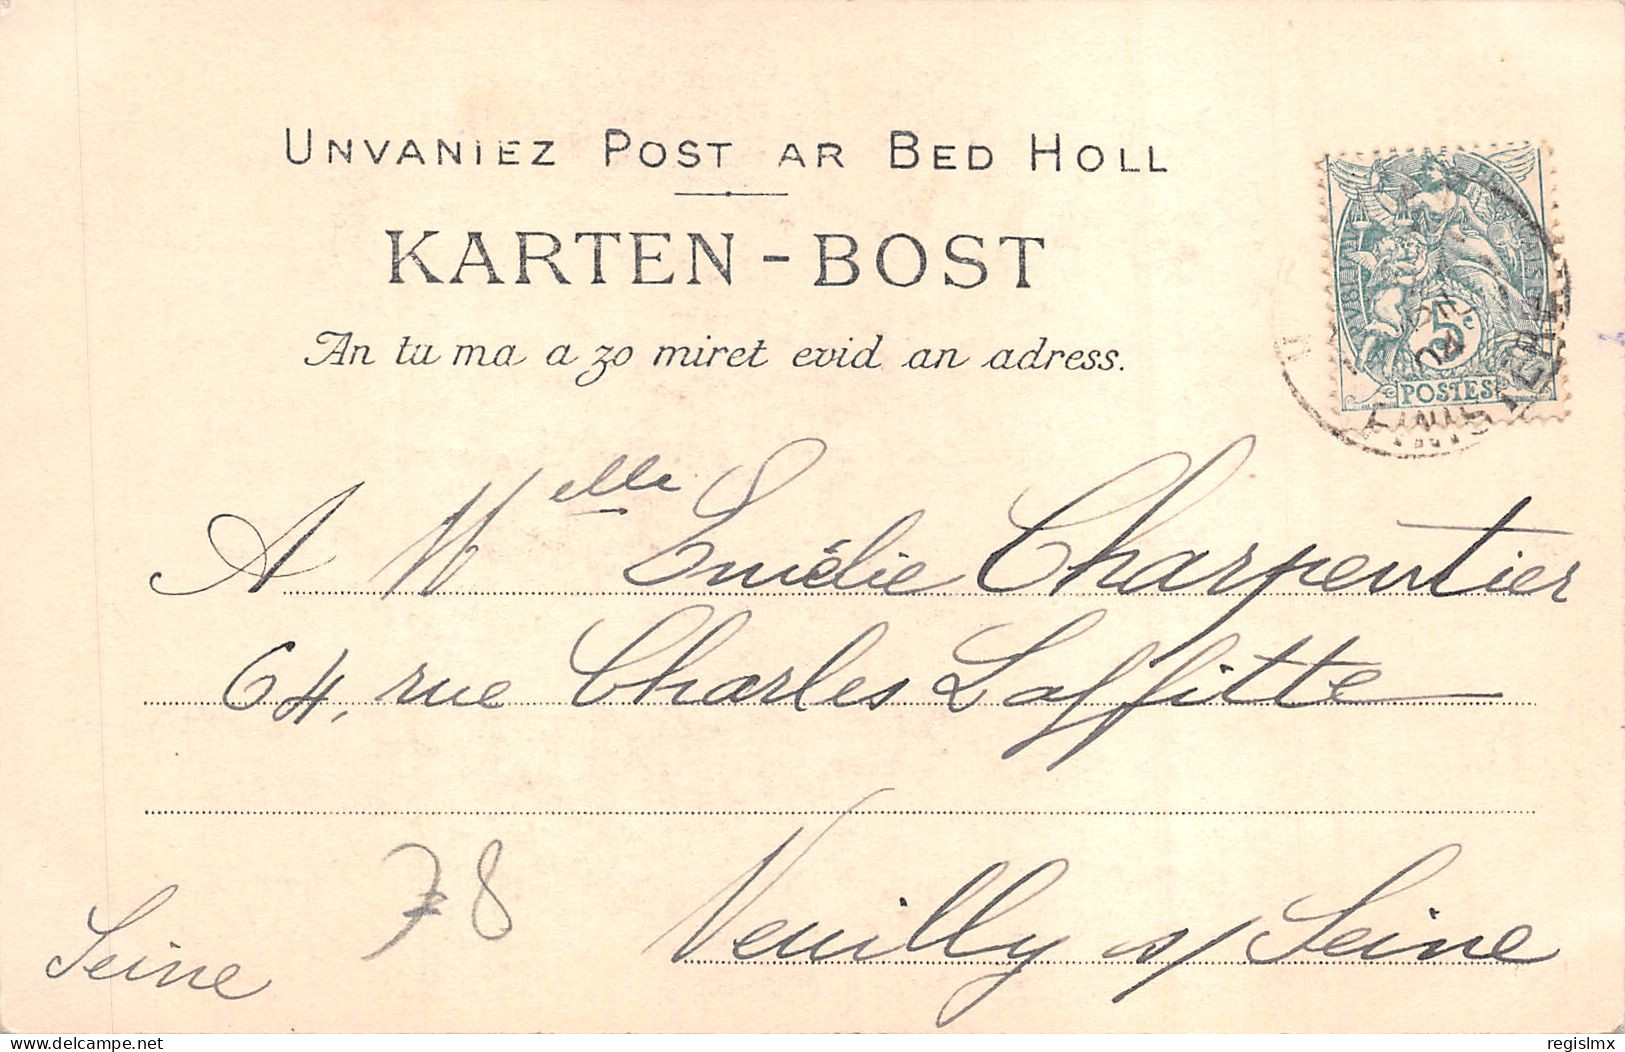 UNVANIEZ POST AR BED HOLL
KARTEN-BOST
An tu ma a zo miret evid an adress.
5c
POSTES
04
FINISTERE
A Melle Emélie Charpentier
64, rue Charles Laffitte
Neuilly s/ Seine
Seine
78
delcampe.net
regislmx